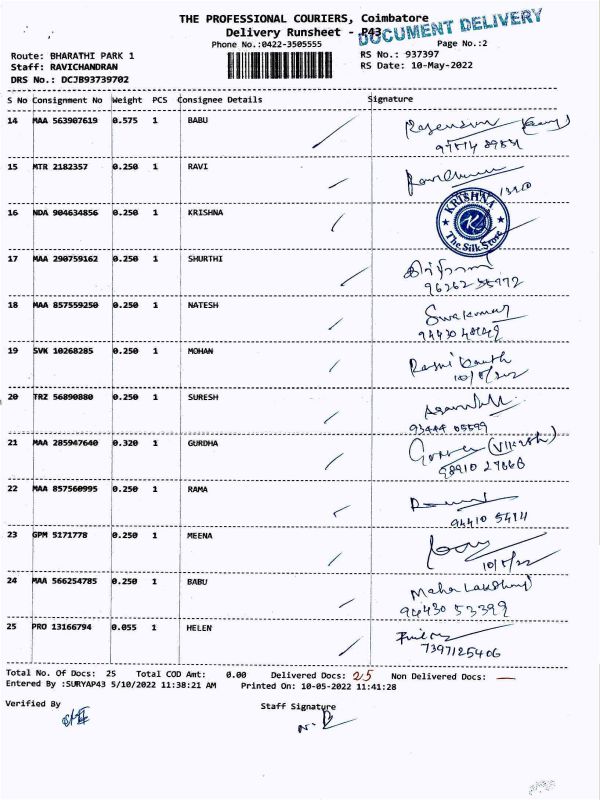 THE PROFESSIONAL COURIERS, Coimbatore
Delivery Runsheet - P43
DOCUMENT DELIVERY
Phone No.:0422-3505555
Page No.:2
Route: BHARATHI PARK 1
RS No.: 937397
Staff: RAVICHANDRAN
RS Date: 10-May-2022
DRS No.: DCJB93739702
S No Consignment No Weight PCS Consignee Details Signature
14 MAA 563907619 0.575 1 BABU
15 MTR 2182357 0.250 1 RAVI
16 NDA 904634856 0.250 1 KRISHNA
KRISHNA
The Silk Store
17 MAA 290759162 0.250 1 SHURTHI
18 MAA 857559250 0.250 1 NATESH
Sivakumar
19 SVK 10268285 0.250 1 MOHAN
20 TRZ 56890880 0.250 1 SURESH
93444 05599
21 MAA 285947640 0.320 1 GURDHA
22 MAA 857560995 0.250 1 RAMA
94410 5414
23 GPM 5171778 0.250 1 MEENA
24 MAA 566254785 0.250 1 BABU
Maha Lakshmi
94430 53399
25 PRO 13166794 0.055 1 HELEN
7397125406
Total No. Of Docs: 25 Total COD Amt: 0.00 Delivered Docs: 25 Non Delivered Docs: —
Entered By :SURYAP43 5/10/2022 11:38:21 AM Printed On: 10-05-2022 11:41:28
Verified By
Staff Signature